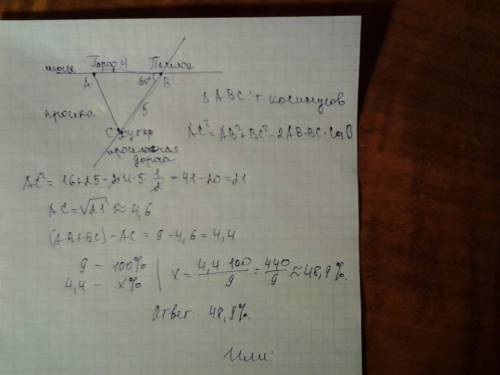 шоссе Город 4 Посёлок
A 60° B
просека 5
C Хутор
просёлочная
дорога
Δ ABC: т. косинусов
AC² = AB² + BC² - 2AB·BC·Cos
AC² = 16+25-2·4·5·1/2 = 41-20=21
AC = √21 ≈ 4,6
(AB+BC) - AC = 9 - 4,6 = 4,4
9 - 100%
4,4 - x%
x = 4,4·100/9 = 440/9 ≈ 48,9%.
Ответ: 48,9%.
Или: